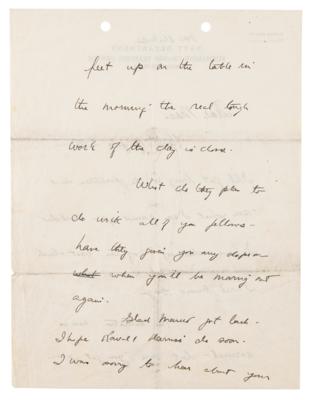 feet up on the table in
the morning the real tough
work of the day is done.
What do they plan to
do with all of you fellows -
have they given you any dope on
what when you'll be moving out
again.
Glad got back.
I hope do soon.
I was sorry to hear about your
NAVY DEPARTMENT